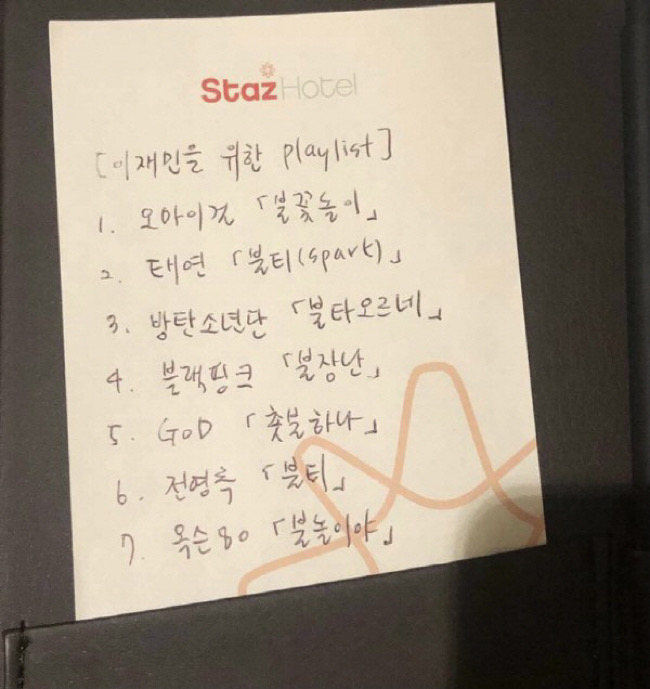 Staz Hotel
[이재민을 위한 playlist]
1. 오마이걸 「불꽃놀이」
2. 태연 「불티(spark)」
3. 방탄소년단 「불타오르네」
4. 블랙핑크 「불장난」
5. GOD 「촛불하나」
6. 전영록 「불티」
7. 옥슨80 「불놀이야」